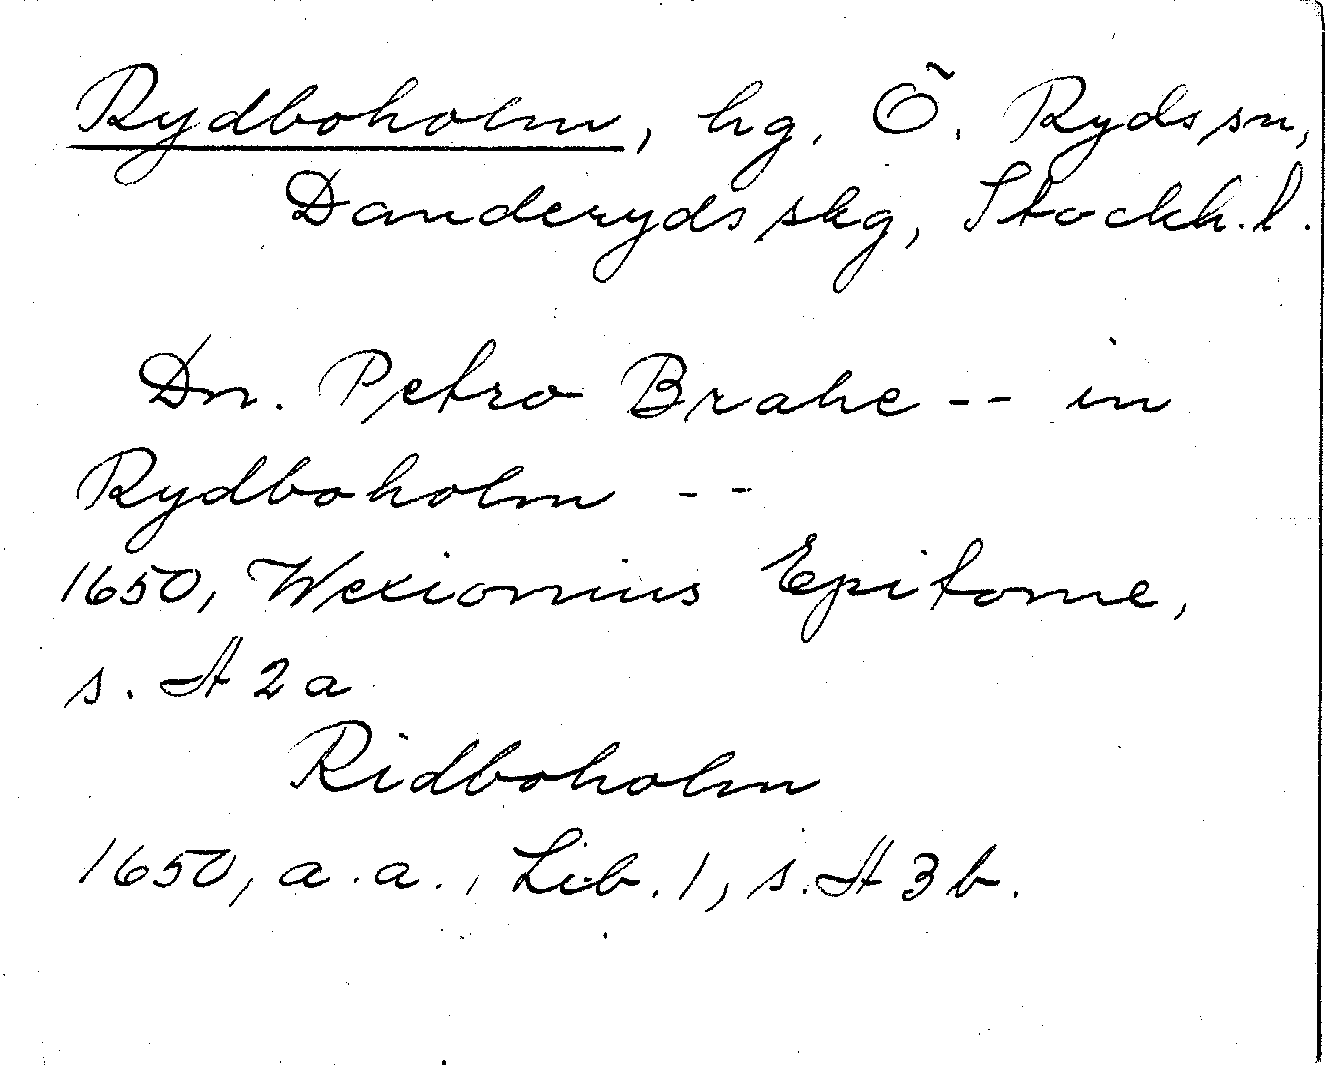 Rydboholm, hg, Ö. Ryds sn,
Danderyds skg, Stockh. l.
Dn. Petro Brahe -- in
Rydboholm --
1650, Wexionius Epitome,
s. A 2 a
Ridboholm
1650, a. a., Lib. 1, s. A 3 b.